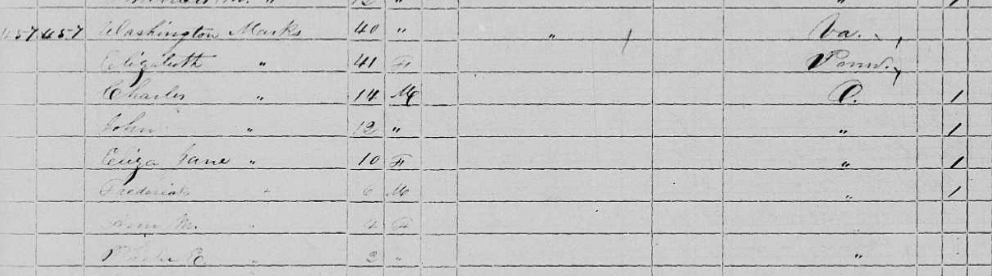 12 "
457 457 Washington Marks 40 " " / Va.
Elizabeth " 41 F Penn.
Charles " 14 M O. 1
John " 12 " " 1
Eliza Jane " 10 F " 1
Frederick " 6 M " 1
Ann M. " 4 F
E " "